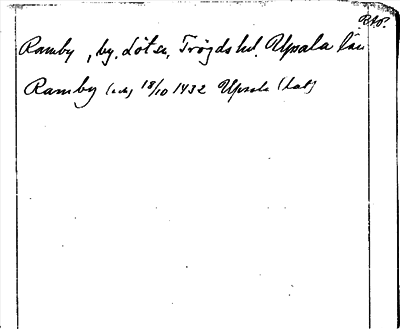 R.A.P.
Ramby, by, Löts sn, Trögds hd. Upsala län
Ramby (sch) 18/10 1432 Upsala (Lat)